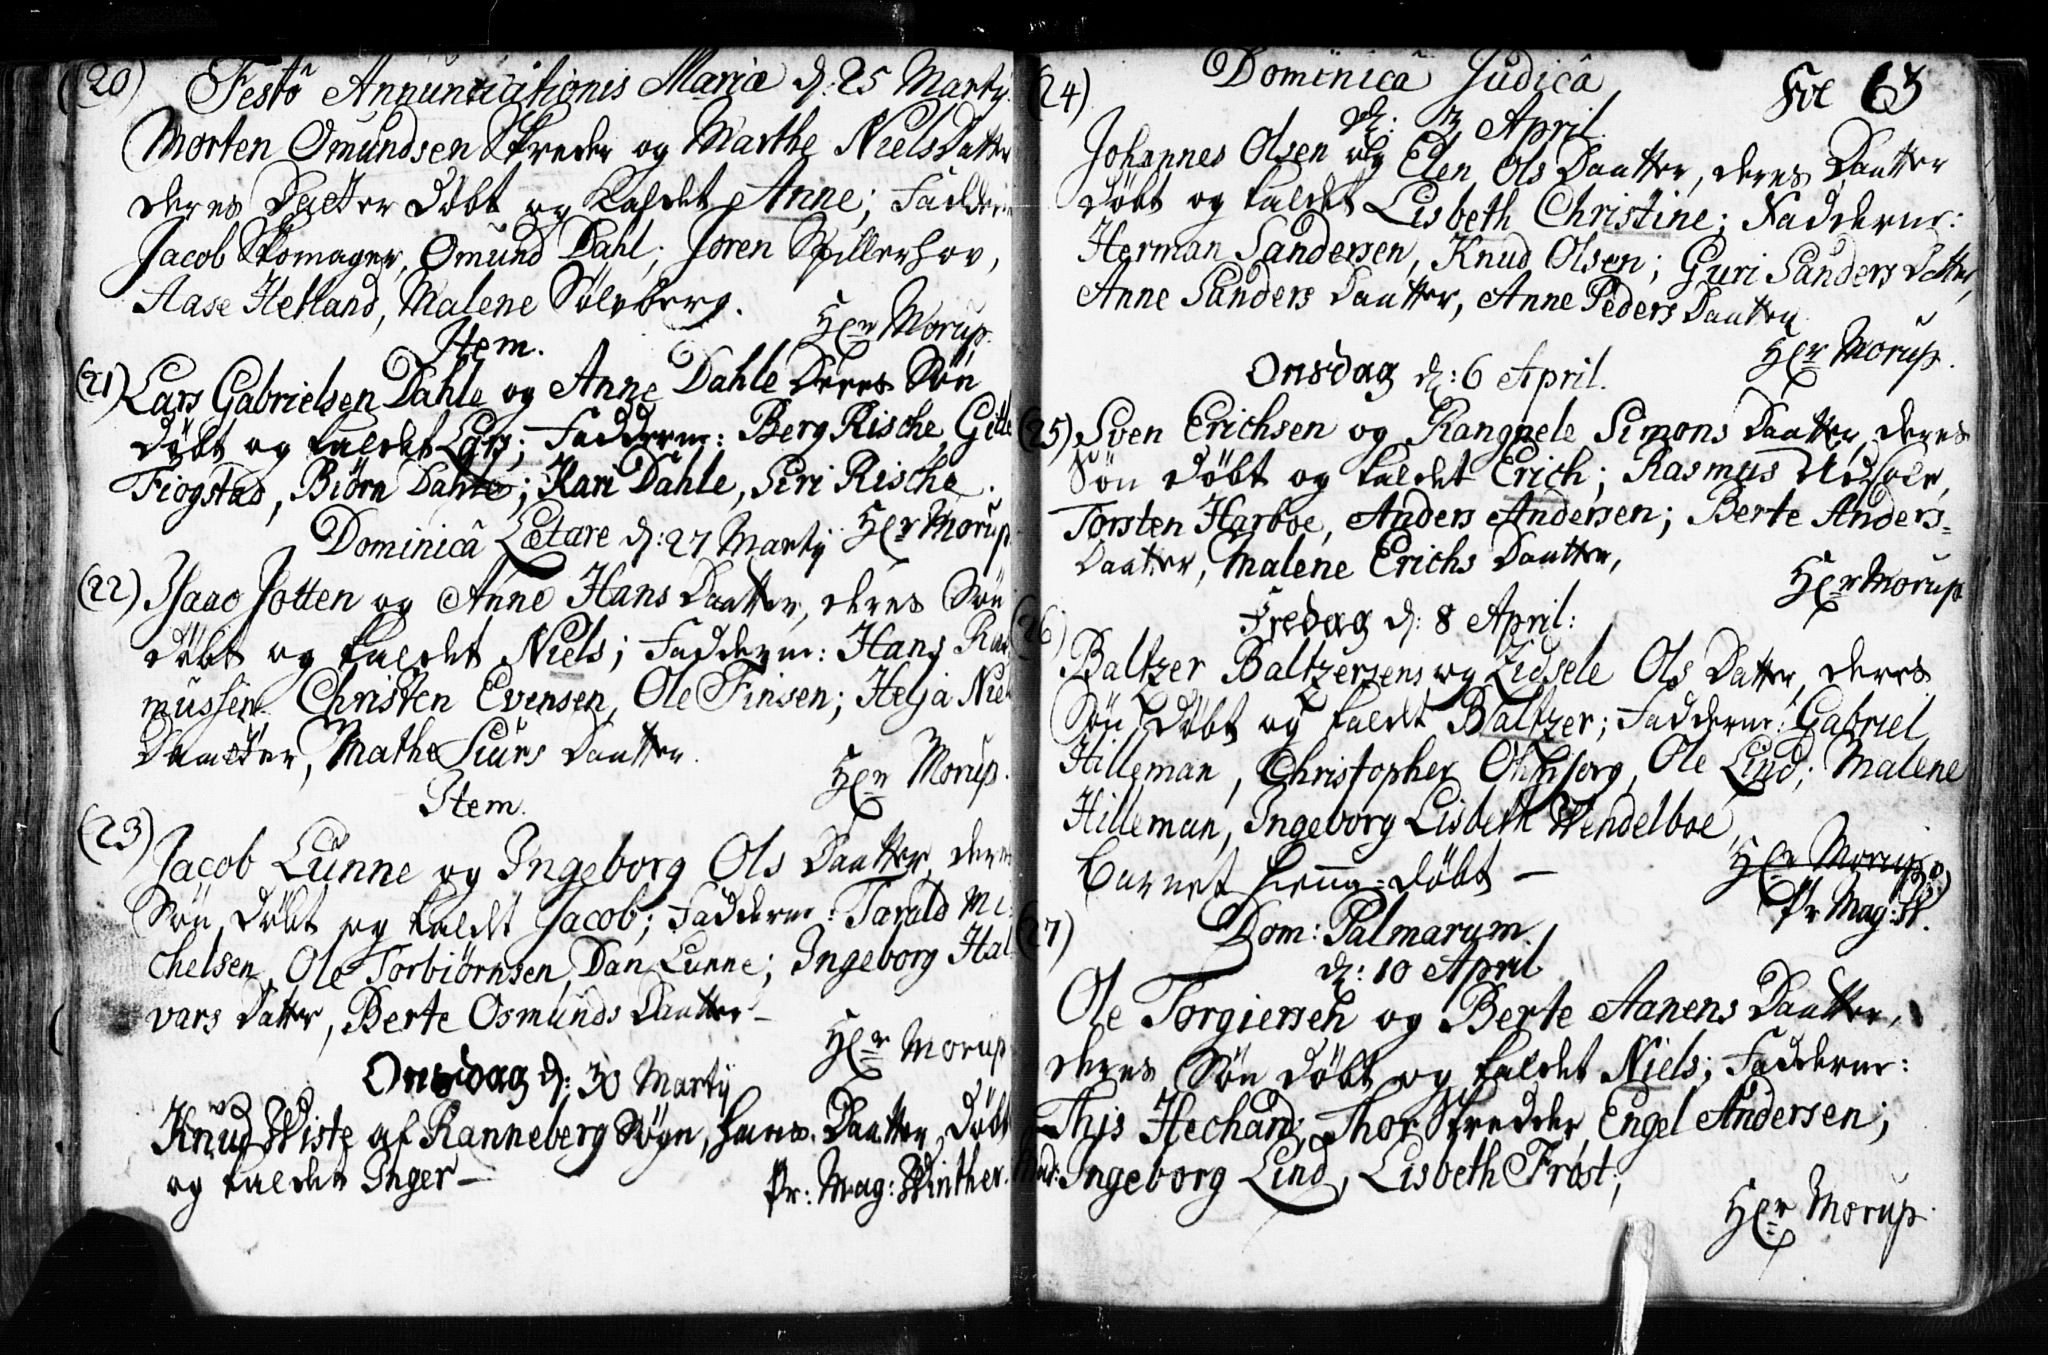 (20) Festô Annunciationis Mariæ d: 25 Martij.
Morten Omundsen Skreder og Marthe NielsDatter
deres Datter Døbt og kaldet Anne; Fadderne
Jacob Skomager, Omund Dahl; Joren Spillerhov,
Aase Hetland, Malene Sølvberg.
Hr Morup.
Item.
(21) Lars Gabrielsen Dahle og Anne Dahle Deres Søn
døbt og kaldet Lars; Fadderne: Berg Rische, Gitle
Fiogstad, Biørn Dahle; Kari Dahle, Siri Rische.
Hr Morup.
Dominicâ Lætare d: 27 Martij
(22) Isaac Jotten og Anne Hans Daatter, deres Søn
døbt og kaldet Niels; Fadderne: Hans Ras-
mussen, Christen Evensen, Ole Finsen; Helja Niels
Daatter, Mathe Siurs Daatter.
Hr Morup.
Item.
(23)
Jacob Lunne og Ingeborg Ols Daatter, deres
Søn, Døbt og kaldet Jacob; Fadderne: Tarald Mi-
chelsen, Ole Torbiørnsen, Dan Lunne; Ingeborg Hal-
vars Datter, Berte Osmunds Daatter –
Hr Morup
Onsdag d: 30 Martij
Knud Wiste af Ranneberg Søgn, hans Daatter Døbt
og kaldet Inger –
Pr: Mag: Winther.
Dominicâ Judicâ
Fol 63
(24)
d: 3 April.
Johannes Olsen og Elen Ols Daatter, deres Daatter
døbt og kaldet Lisbeth Christine; Fadderne:
Herman Sandersen, Knud Olsen; Guri Sanders Datter,
Anne Sanders Daatter, Anne Peders Daatter.
Hr Morup.
Onsdag d: 6 April.
(25) Sven Erichsen og Rangnele Simons Daatter, deres
Søn døbt og kaldet Erich; Rasmus
Torsten Harboe, Anders Andersen; Berte Anders-
Daatter, Malene Erichs Daatter,
Hr Morup
Fredag d: 8 April:
(26)
Baltzer Baltzersens og Zidsele Ols Datter, deres
Søn Døbt og kaldet Baltzer; Fadderne: Gabriel
Hilleman, Christopher Ole Lind; Malene
Hilleman, Ingeborg Lisbeth Wendelboe,
Barnet hiemme-døbt –
Hr Morup
Pr Mag: W.
(27)
Dom: Palmarum.
d: 10 April
Ole Torgiersen og Berte Aanens Daatter,
deres Søn døbt og kaldet Niels; Fadderne:
This Hechand, Thor Skredder, Engel Andersen;
Mad: Ingeborg Lind, Lisbeth Frost;
Hr Morup.